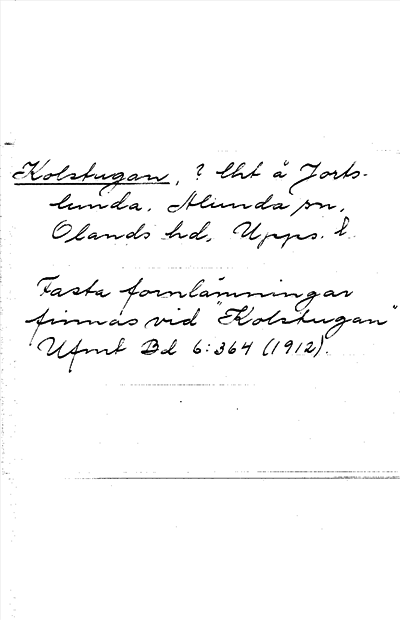 Kolstugan, ? lht å Jorts-
lunda. Alunda sn,
Olands hd, Upps. l.
Fasta fornlämningar
finnas vid "Kolstugan"
Ufmt Bd 6:364 (1912).